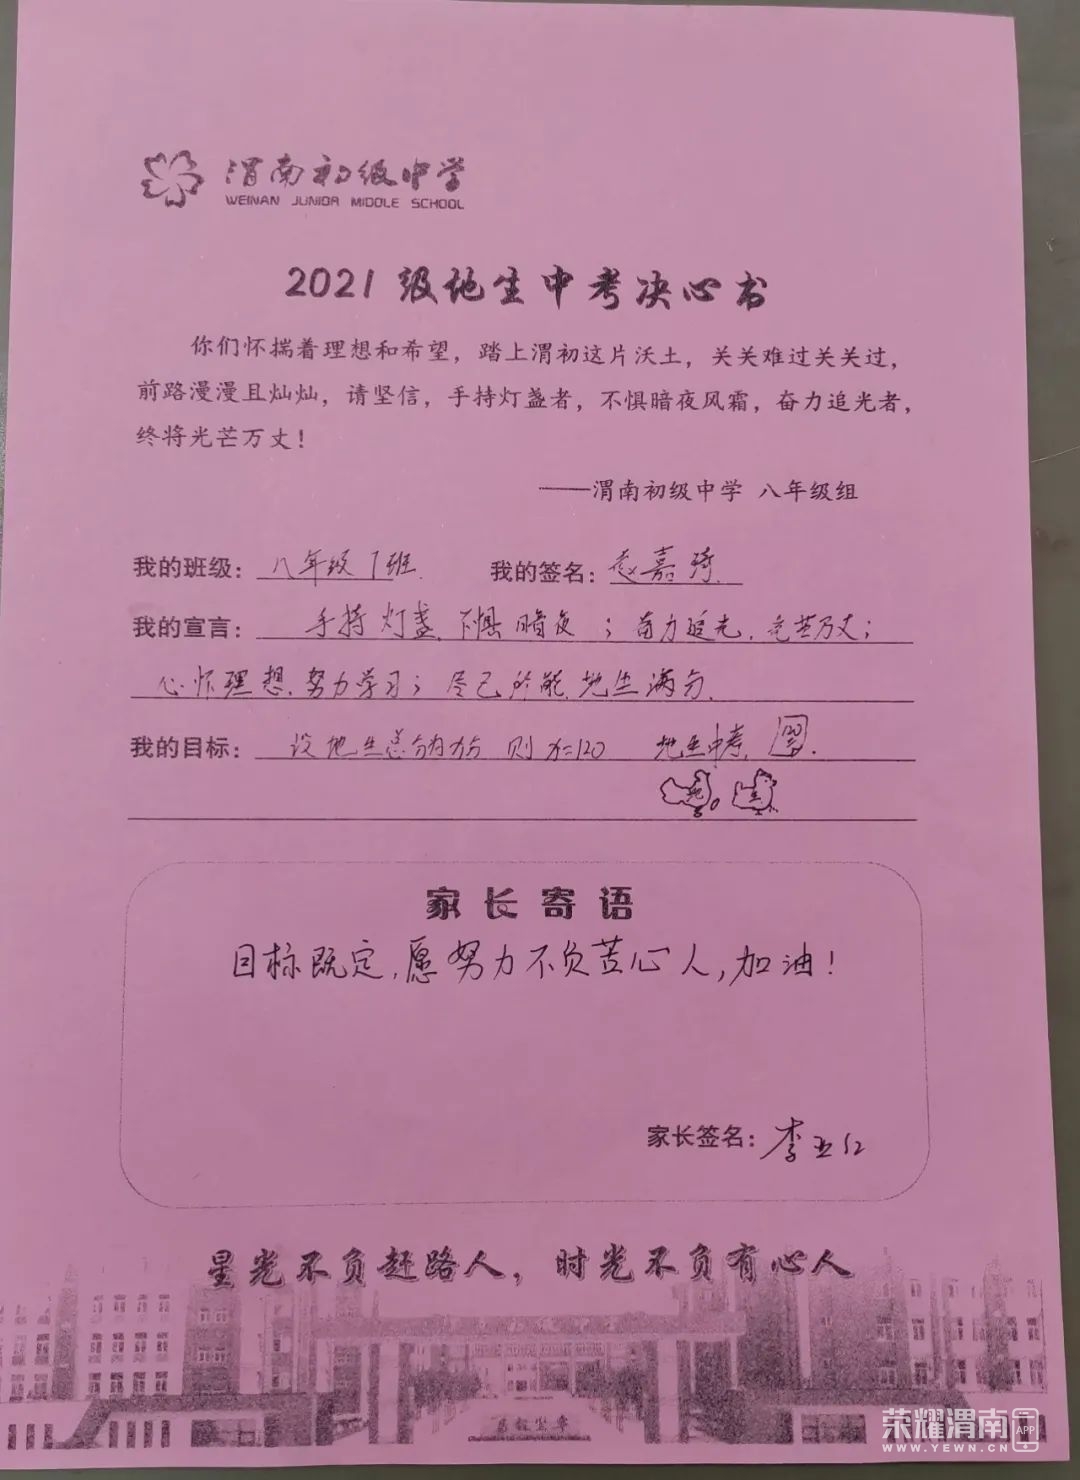 渭南初级中学
WEINAN JUNIOR MIDDLE SCHOOL
2021级地生中考决心书
你们怀揣着理想和希望，踏上渭初这片沃土，关关难过关关过，
前路漫漫且灿灿，请坚信，手持灯盏者，不惧暗夜风霜，奋力追光者，
终将光芒万丈！
——渭南初级中学 八年级组
我的班级：八年级1班. 我的签名：赵嘉琦.
我的宣言：手持灯盏,不惧暗夜；奋力追光,光芒万丈；
心怀理想,努力学习；尽己所能,地生满分.
我的目标：设地生总分为x分 则x=120 地生中考,
地 生
家长寄语
目标既定,愿努力不负苦心人,加油！
家长签名：李亚红
星光不负赶路人，时光不负有心人
荣耀渭南 APP
WWW.YEWN.CN